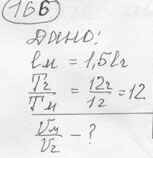 166
Дано:
lм = 1,5lг
Tг/Tм = 12г/1г = 12
Vм/Vг - ?